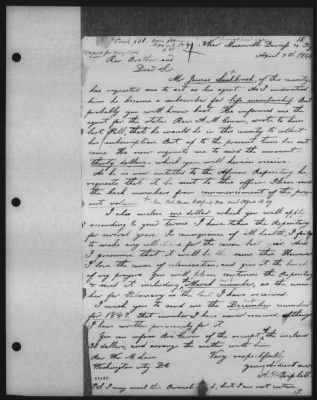 18
April 7th 184
Rev. Brother and
Dear Sir
Mr James Shelbrook, of this county,
has requested me to act as his agent. As I understand
him he became a subscriber for life membership. But
probably you will know best. He informed me the
agent for the state Rev A. M. Cowan, wrote to him
last Fall, that he would be in the county to collect
his subscription. But up to the present time has not
came. He now requests me to send the amount
thirty dollars, which you will herein receive.
As he is now entitled to the African Repository he
requests that it be sent to this office. Please send
the back numbers from commencement of the pres
ent volume
I also enclose one dollar which you will apply
according to your terms. I have taken the Repository
for several years. In consequence of ill health, I fai
to make any for the cause last
I presume that I will be the same this
I love the cause of colonization, and give it the
of my prayers. You will please continue the Repository
& send it including March number, as the num
ber for February is the last I have received.
I wish you to send me the December number
for 1847. That number I have never received, although
I have written previously for it.
You can inform Bro Cowan of the receipt of the enclosed
30 dollars, and arrange the matter with him
Rev. Wm McLain Very respectfully
Washington city D.C. your obedient servt
A. H. Triplett
P.S. I may need the , but I am not certain.